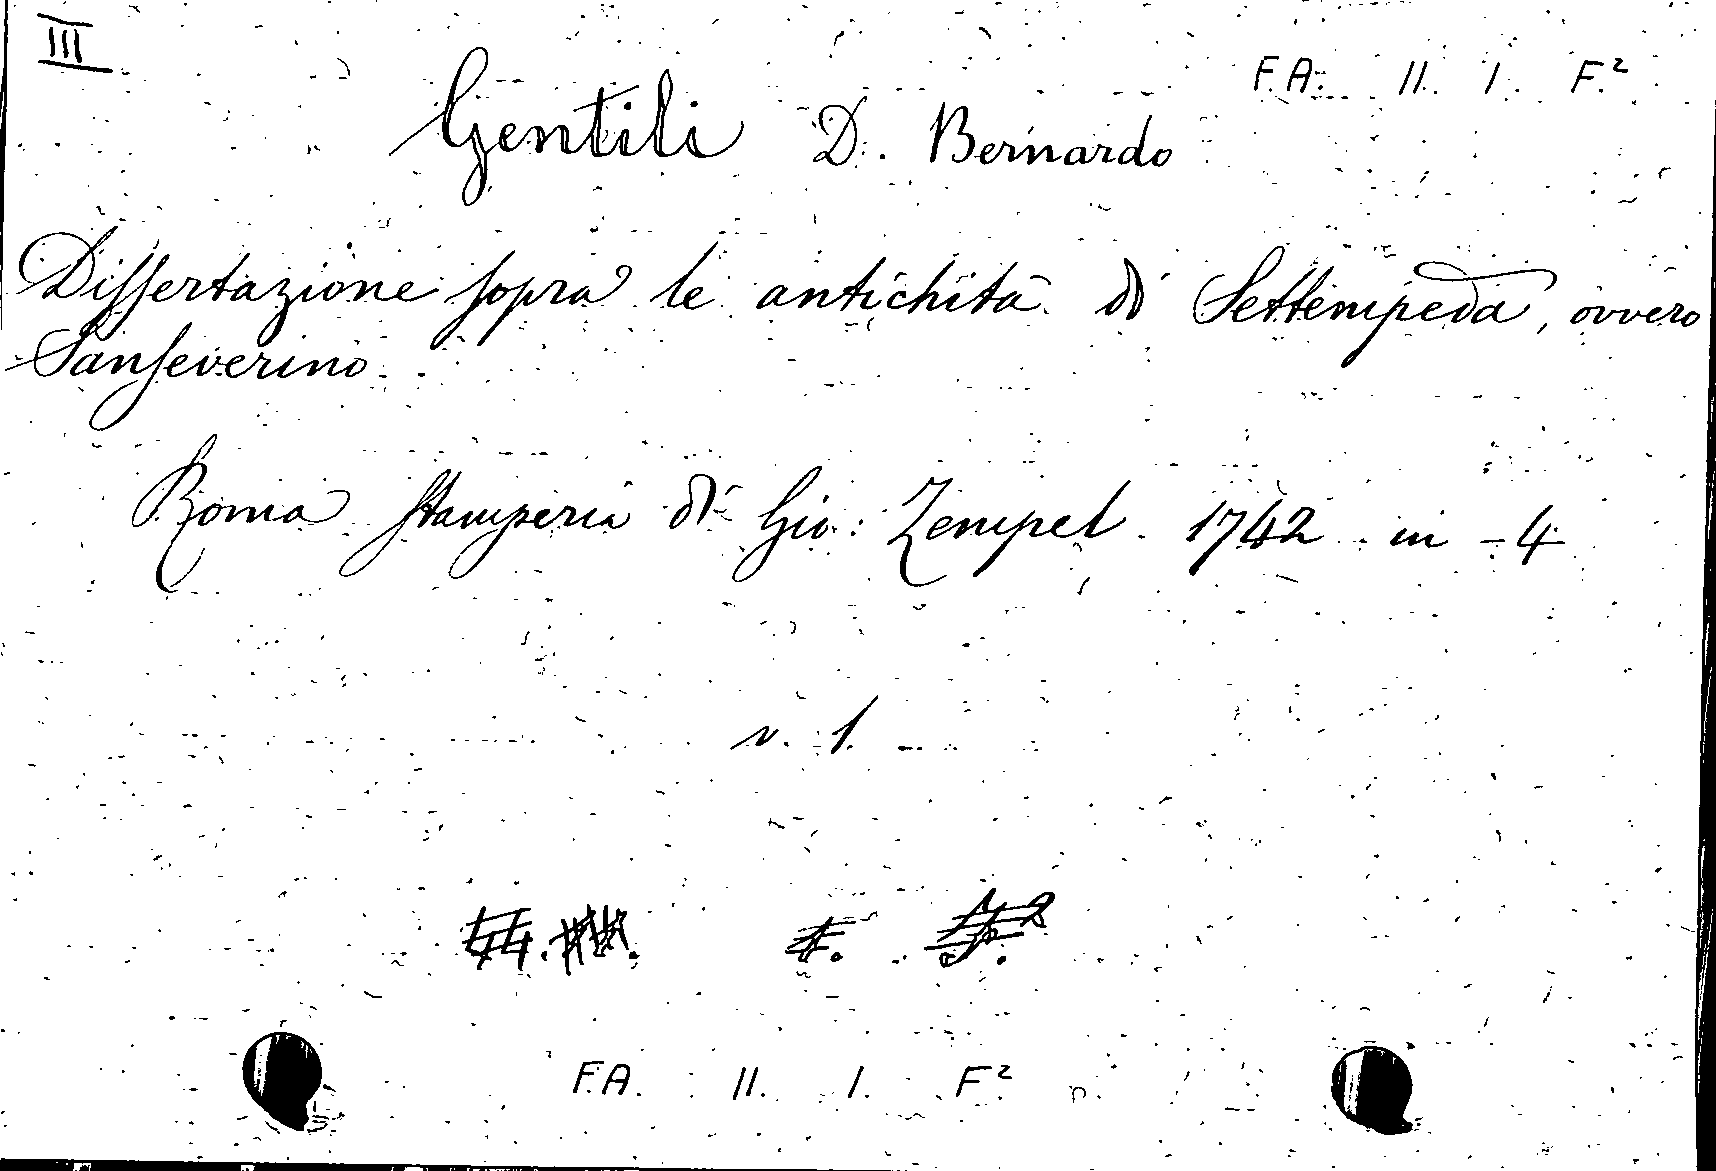 III
F.A. II. I. F.²
Gentili D. Bernardo
Dissertazione sopra le antichità di Settempeda, ovvero
Sanseverino
Roma Stamperia di Gio: Zempel 1742 in-4
v. 1.
F.A. II. I. F²